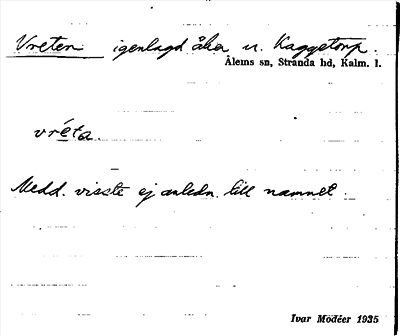 Vreten igenlagd åker u. Kaggetorp.
Ålems sn, Stranda hd, Kalm. l.
vréta.
Medd. visste ej anledn. till namnet.
Ivar Modéer 1935